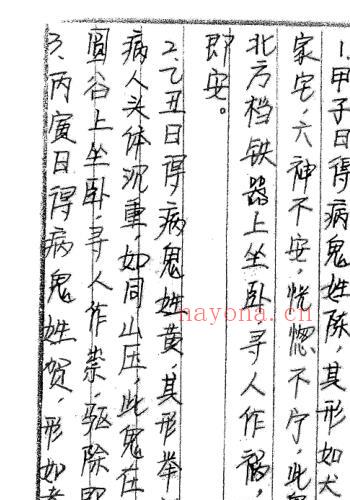 1.甲子日得病鬼姓陈,其形如犬
家宅,六神不安,恍惚不宁,此
北方档铁器上坐卧,寻人作祸,
即安。
2.乙丑日得病鬼姓黄,其形举
病人头体沉重,如同山压,此鬼在
圆谷上坐卧,寻人作祟,驱除
3.丙寅日得病鬼姓贺,形如
hayona.cn